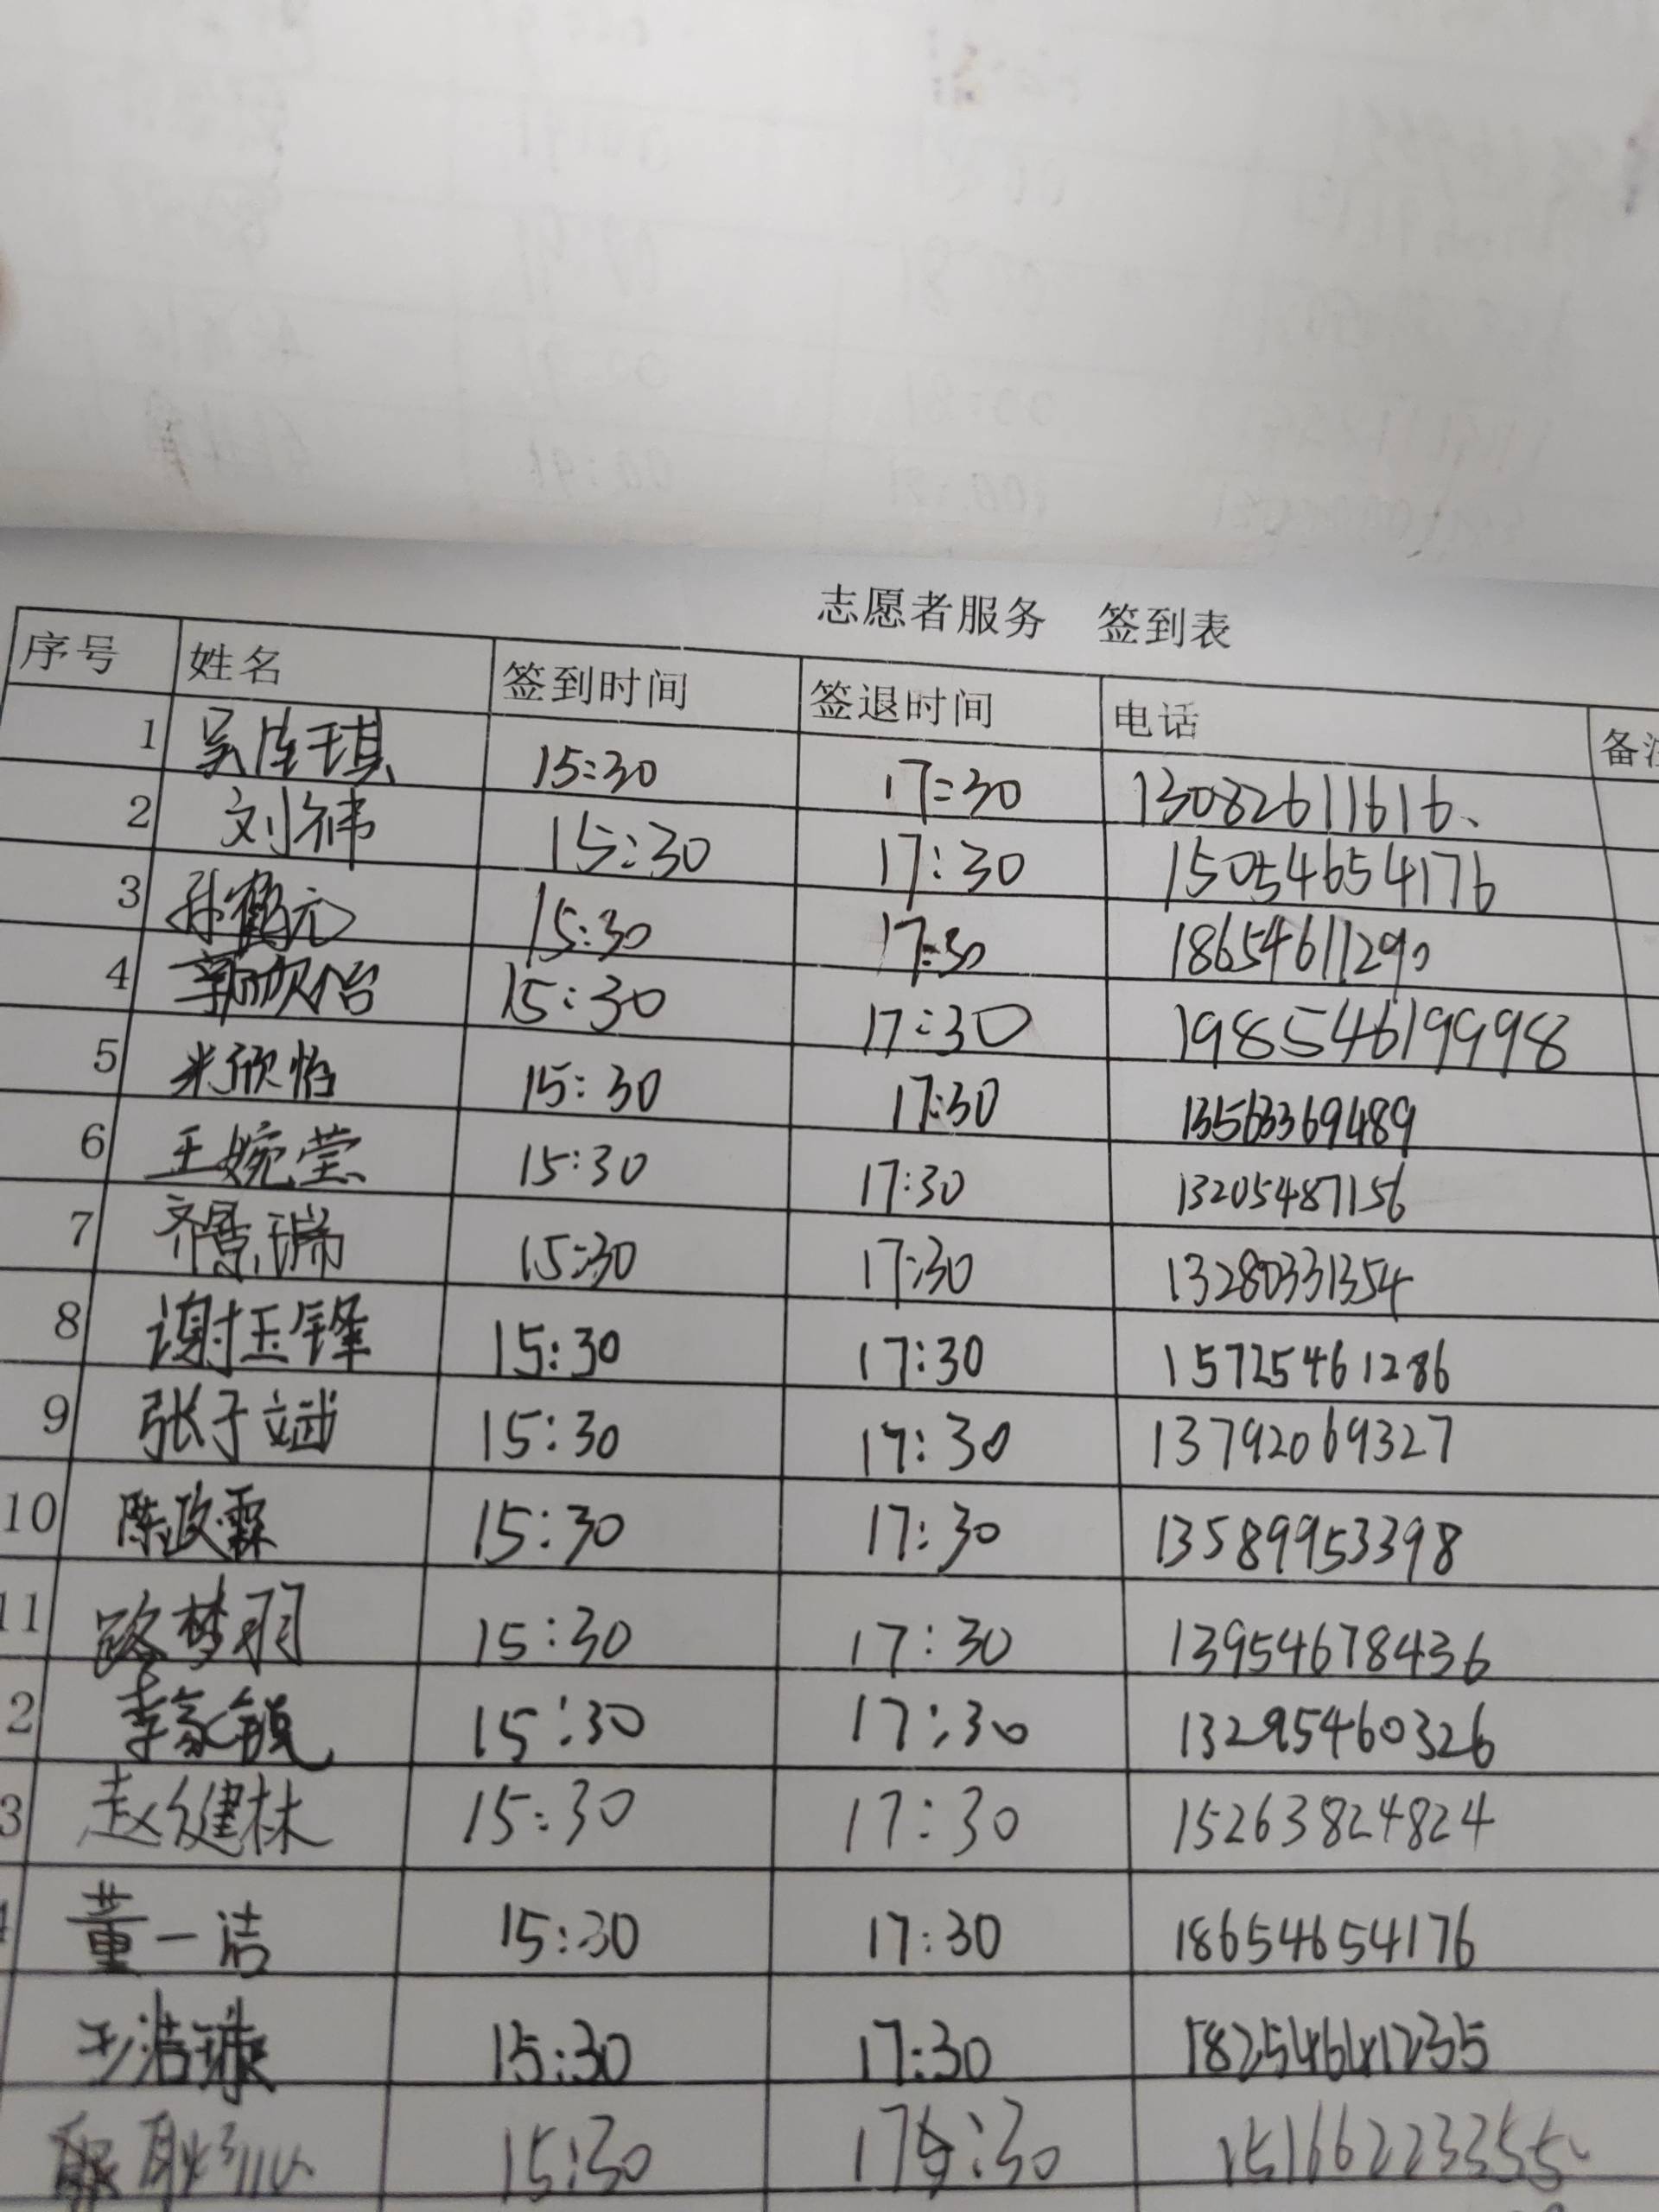 志愿者服务 签到表
序号 姓名 签到时间 签退时间 电话 备注
1 15:30 17:30 13082611616、
2 刘祎 15:30 17:30 15054654176
3 孙鹤元 15:30 17:30 18654611290
4 郭欣怡 15:30 17:30 19854619998
5 米欣怡 15:30 17:30 13563369489
6 王婉莹 15:30 17:30 13205487156
7 齐景瑞 15:30 17:30 13280331354
8 谢玉锋 15:30 17:30 15725461286
9 张子斌 15:30 17:30 13792069327
10 陈政霖 15:30 17:30 13589953398
11 路梦羽 15:30 17:30 13954678436
2 李家锐 15:30 17:30 13295460326
3 赵健林 15:30 17:30 15263824824
董一洁 15:30 17:30 18654654176
王浩璇 15:30 17:30
15:30 15166223355